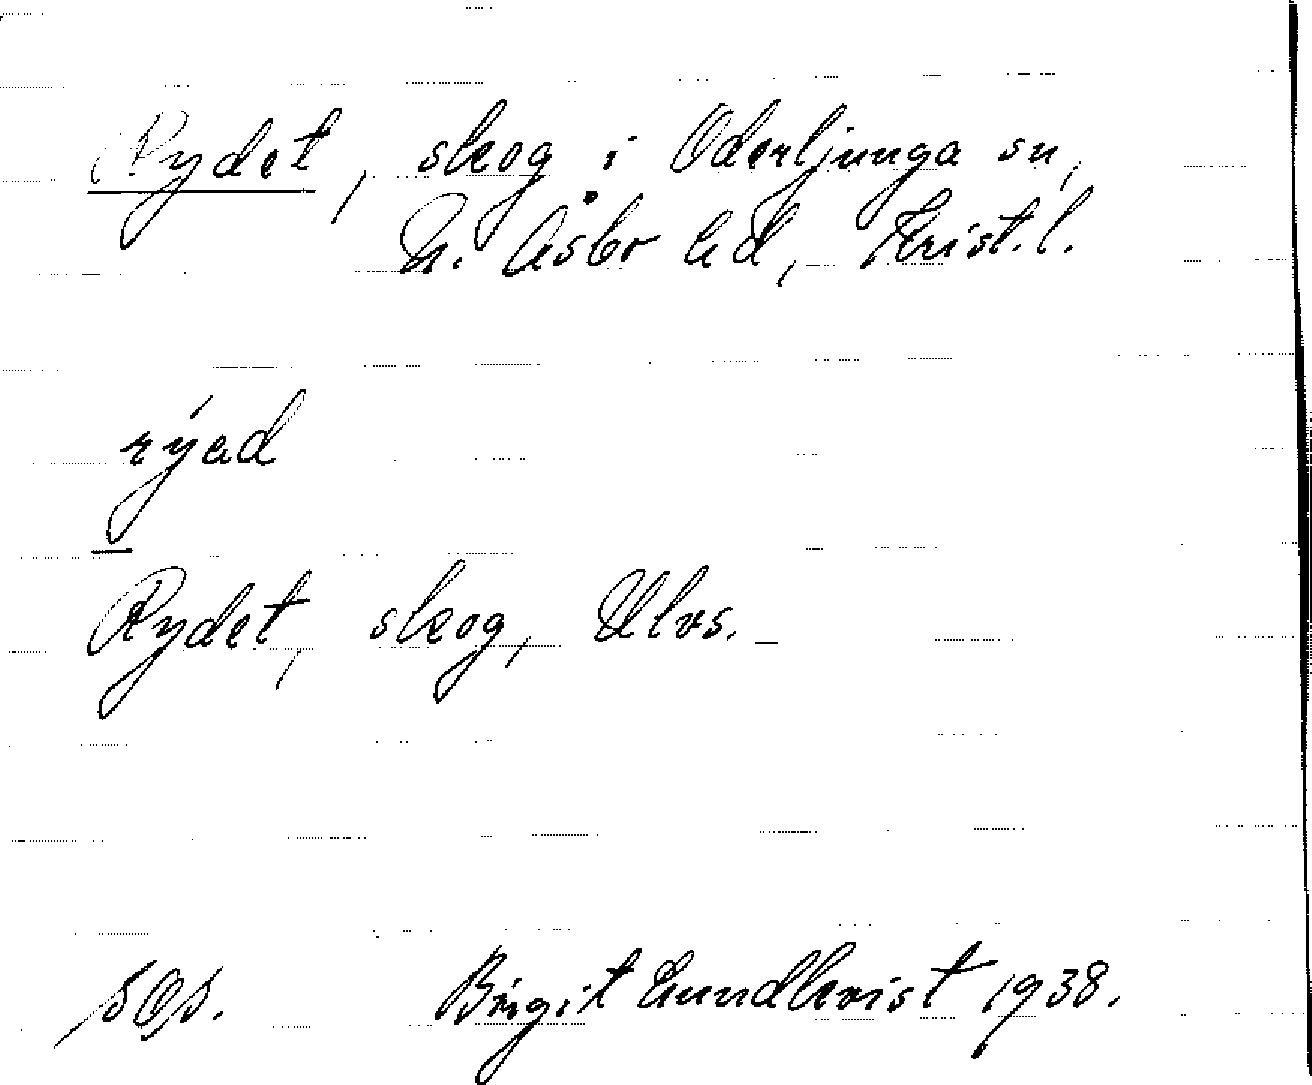 Rydet, skog i Oderljunga sn,
N. Åsbo hd, Krist. l.
rýad
Rydet, skog, Ulvs.
Birgit Lundkvist 1938.